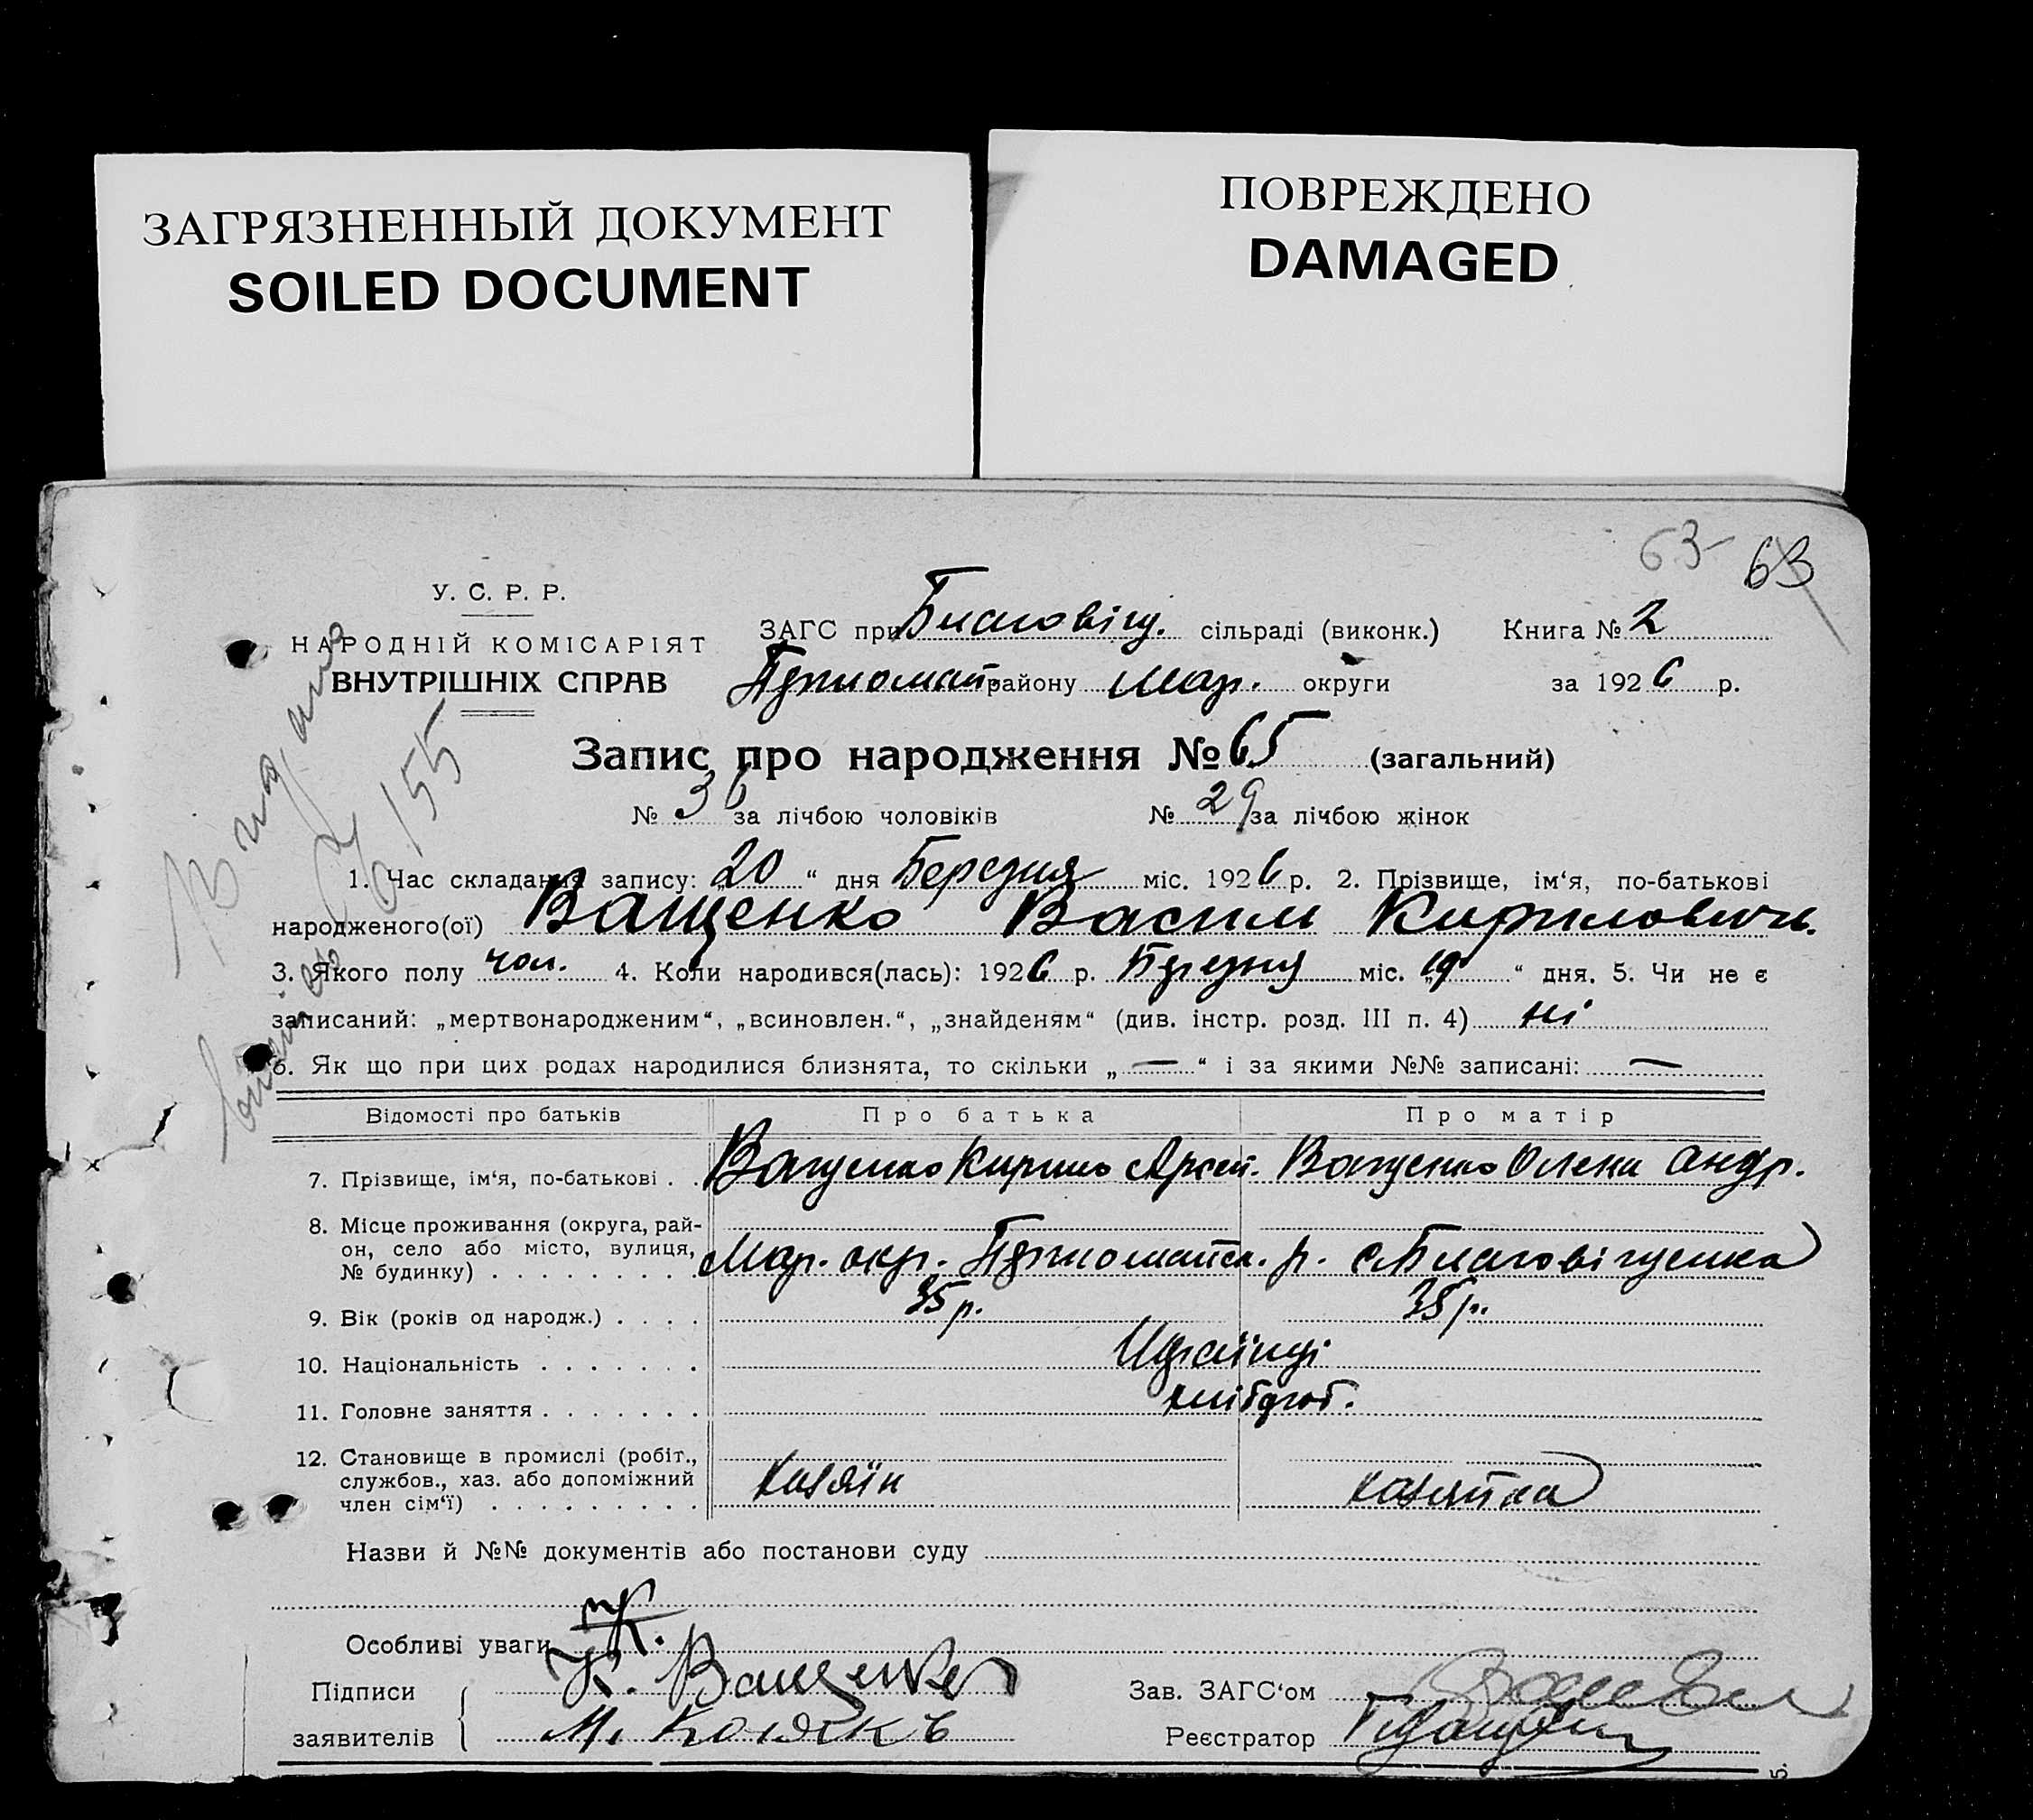 ЗАГРЯЗНЕННЫЙ ДОКУМЕНТ
SOILED DOCUMENT
ПОВРЕЖДЕНО
DAMAGED
63 63
У. С. Р. Р.
НАРОДНІЙ КОМІСАРІЯТ
ВНУТРІШНІХ СПРАВ
ЗАГС при Благовіщ. сільраді (виконк.) Книга № 2
Першомай. району Мар. округи за 1926 р.
Запис про народження № 65 (загальний)
№ 36 за лічбою чоловіків № 29 за лічбою жінок
1. Час складання запису: „20“ дня Березня міс. 1926 р. 2. Прізвище, ім‘я, по-батькові
народженого(ої) Ващенко Василь Кирилович.
3. Якого полу чол. 4. Коли народився(лась): 1926 р. Березня міс. „19“ дня. 5. Чи не є
записаний: „мертвонародженим“, „всиновлен.“, „знайденям“ (див. інстр. розд. III п. 4) ні
6. Як що при цих родах народилися близнята, то скільки „—“ і за якими №№ записані: —
Відомості про батьків Про батька Про матір
7. Прізвище, ім‘я, по-батькові . . Ващенко Кирило Арсен. Ващенко Олена Андр.
8. Місце проживання (округа, рай-
он, село або місто, вулиця,
№ будинку) . . . . . . . . . Мар. окр. Першомайськ. р. с. Благовіщенка
9. Вік (років од народж.) . . . . 35 р. 35 р.
10. Національність . . . . . . . Українці
11. Головне заняття . . . . . . . хлібороб.
12. Становище в промислі (робіт.,
службов., хаз. або допоміжний
член сім‘ї) . . . . . . . . . хазяїн хазяйка
Назви й №№ документів або постанови суду
Особливі уваги
Підписи К. Ващенко Зав. ЗАГС‘ом
заявителів М. Реєстратор